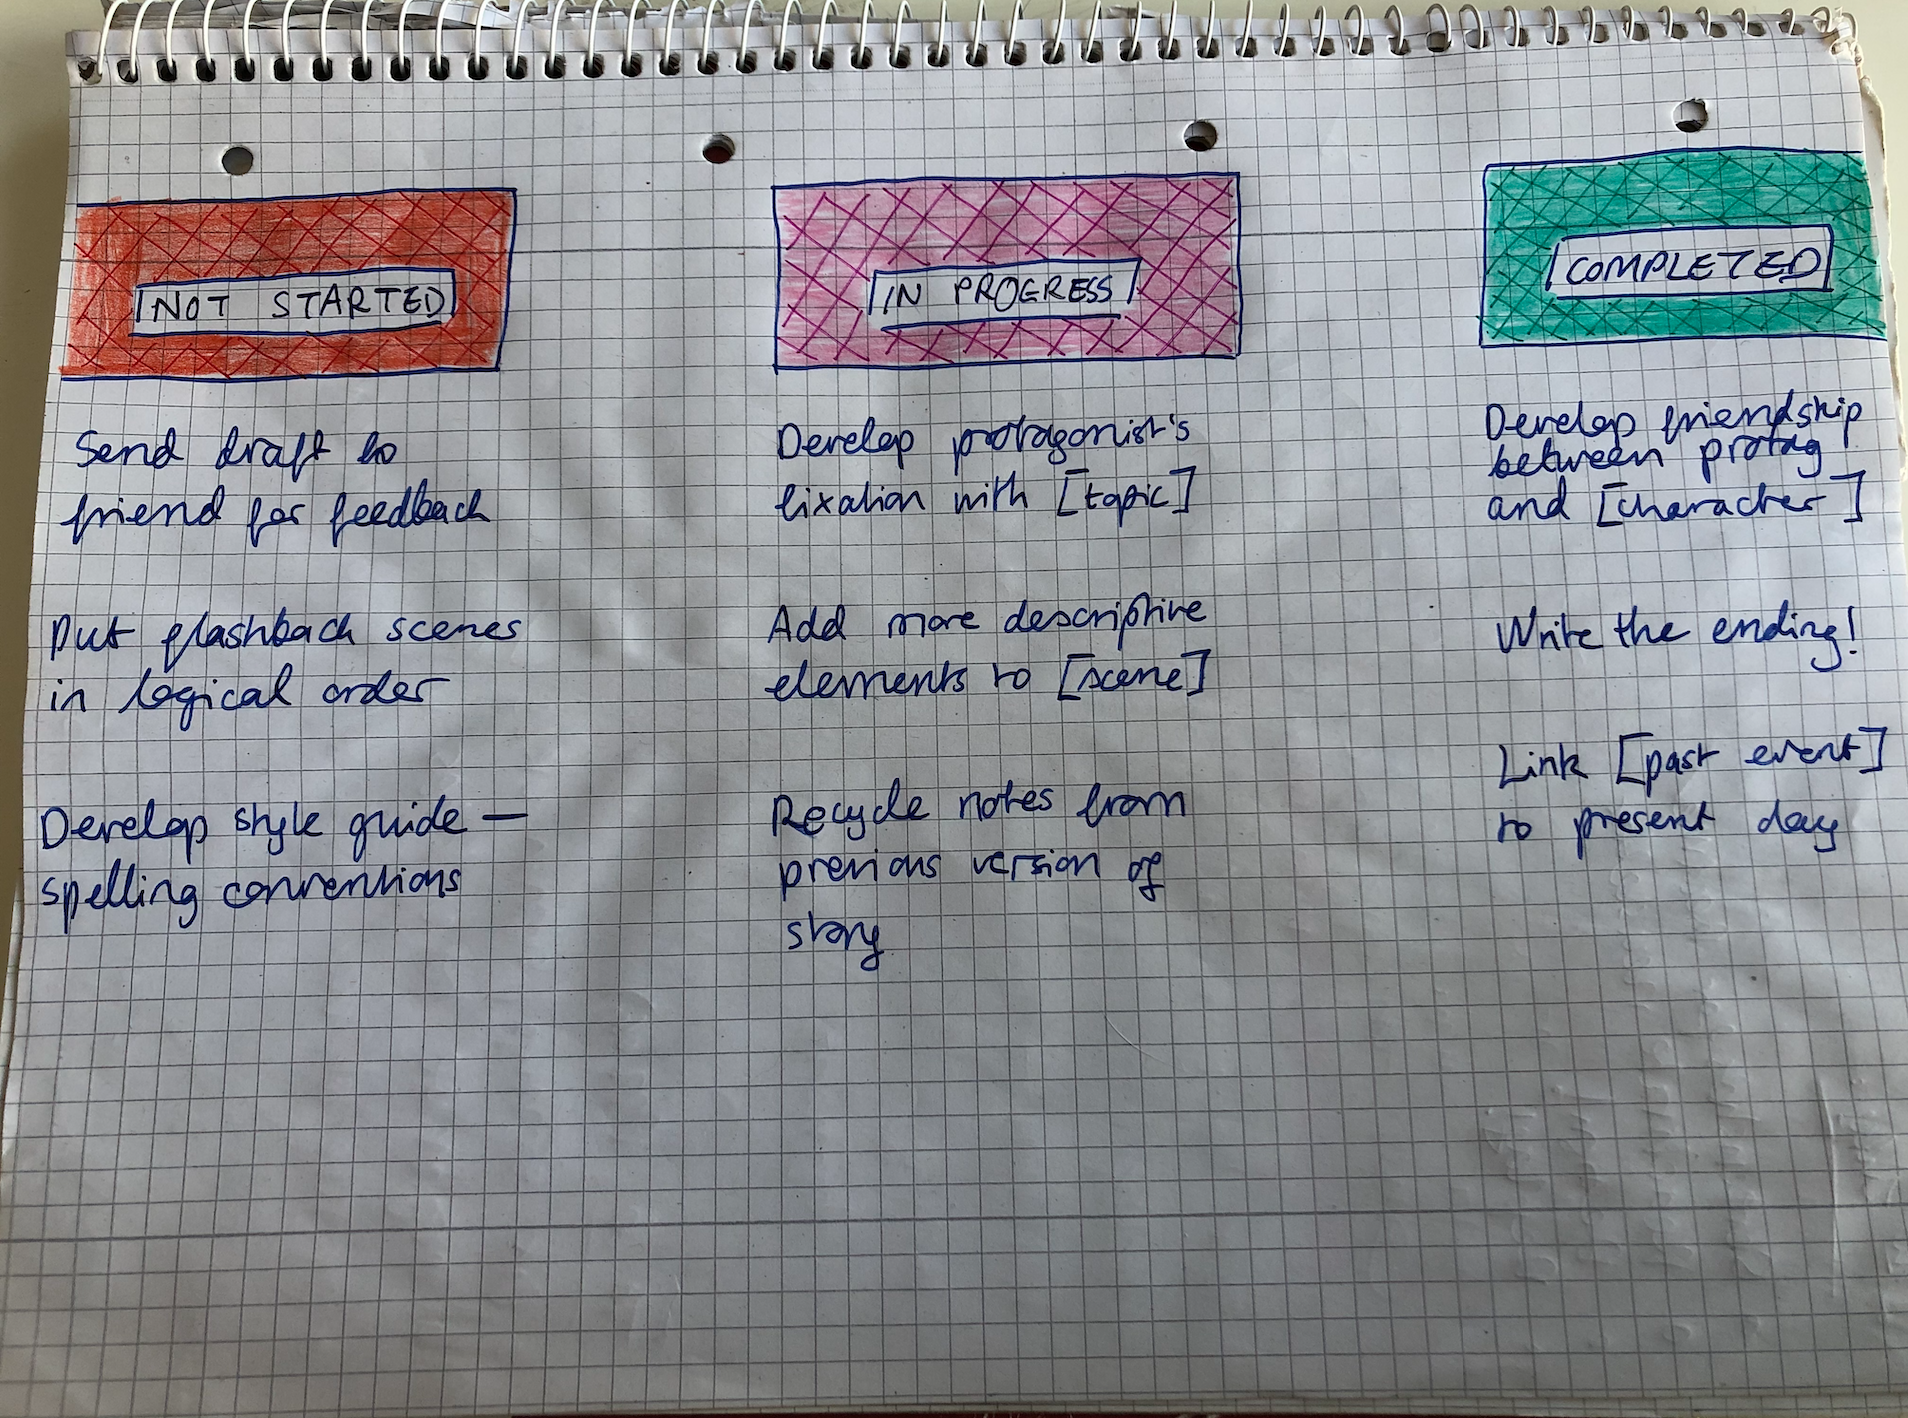 NOT STARTED
Send draft to
friend for feedback
Put flashback scenes
in logical order
Develop style guide —
spelling conventions
IN PROGRESS
Develop protagonist's
fixation with [topic]
Add more descriptive
elements to [scene]
Recycle notes from
previous version of
story
COMPLETED
Develop friendship
between protag
and [character]
Write the ending!
Link [past event]
to present day